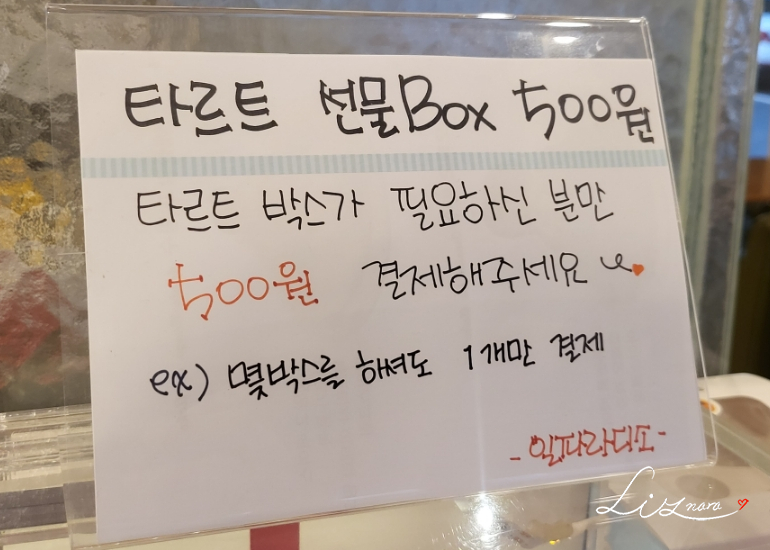 타르트 선물Box 500원
타르트 박스가 필요하신 분만
500원 결제해주세요
ex) 몇박스를 하셔도 1개만 결제
-일파라디소-
Liz nara